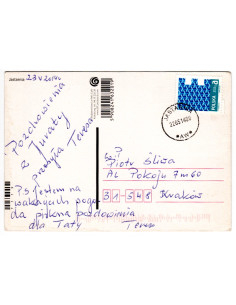 Jastarnia 23.V.2014r
Pozdrowienia
z Juraty
przesyła Teresa
P.S. Jestem na
wakacjach pogo
da piękna pozdowienia
dla Taty Teres
Sz. P
Piotr Śliwa
AL Pokoju 7m60
31-548 Kraków
POLSKA